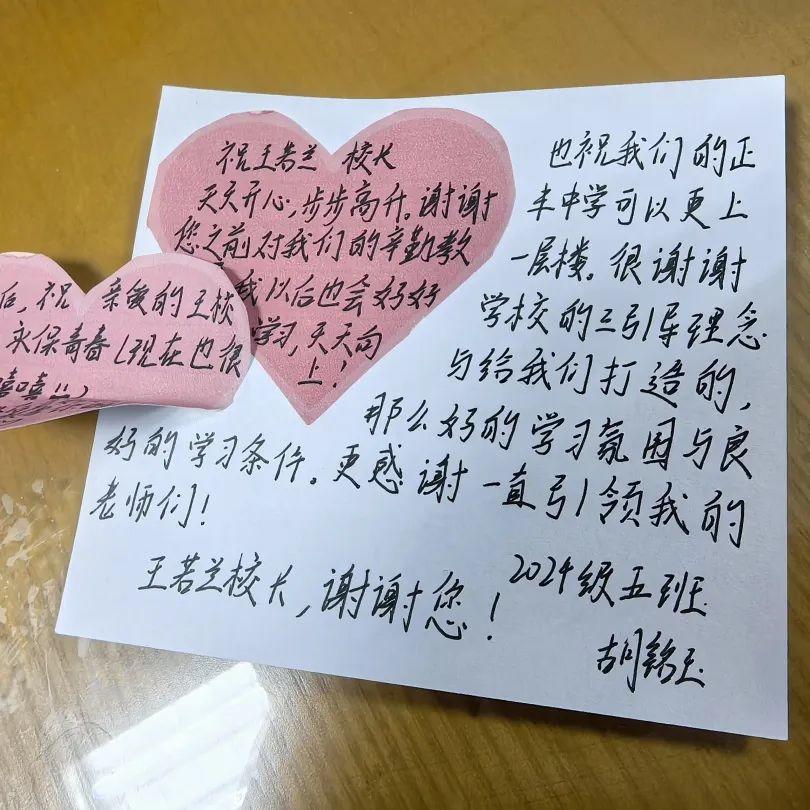 祝王若兰 校长
天天开心,步步高升。谢谢
您之前对我们的辛勤教
我以后也会好好
学习,天天向
上!
后,祝 亲爱的王校
永保青春(现在也很
嘻嘻!!)
也祝我们的正
丰中学可以更上
一层楼。很谢谢
学校的三引导理念
与给我们打造的,
那么好的学习氛围与良
好的学习条件。更感谢一直引领我的
老师们!
王若兰校长,谢谢您!
2024级五班
胡铭玉